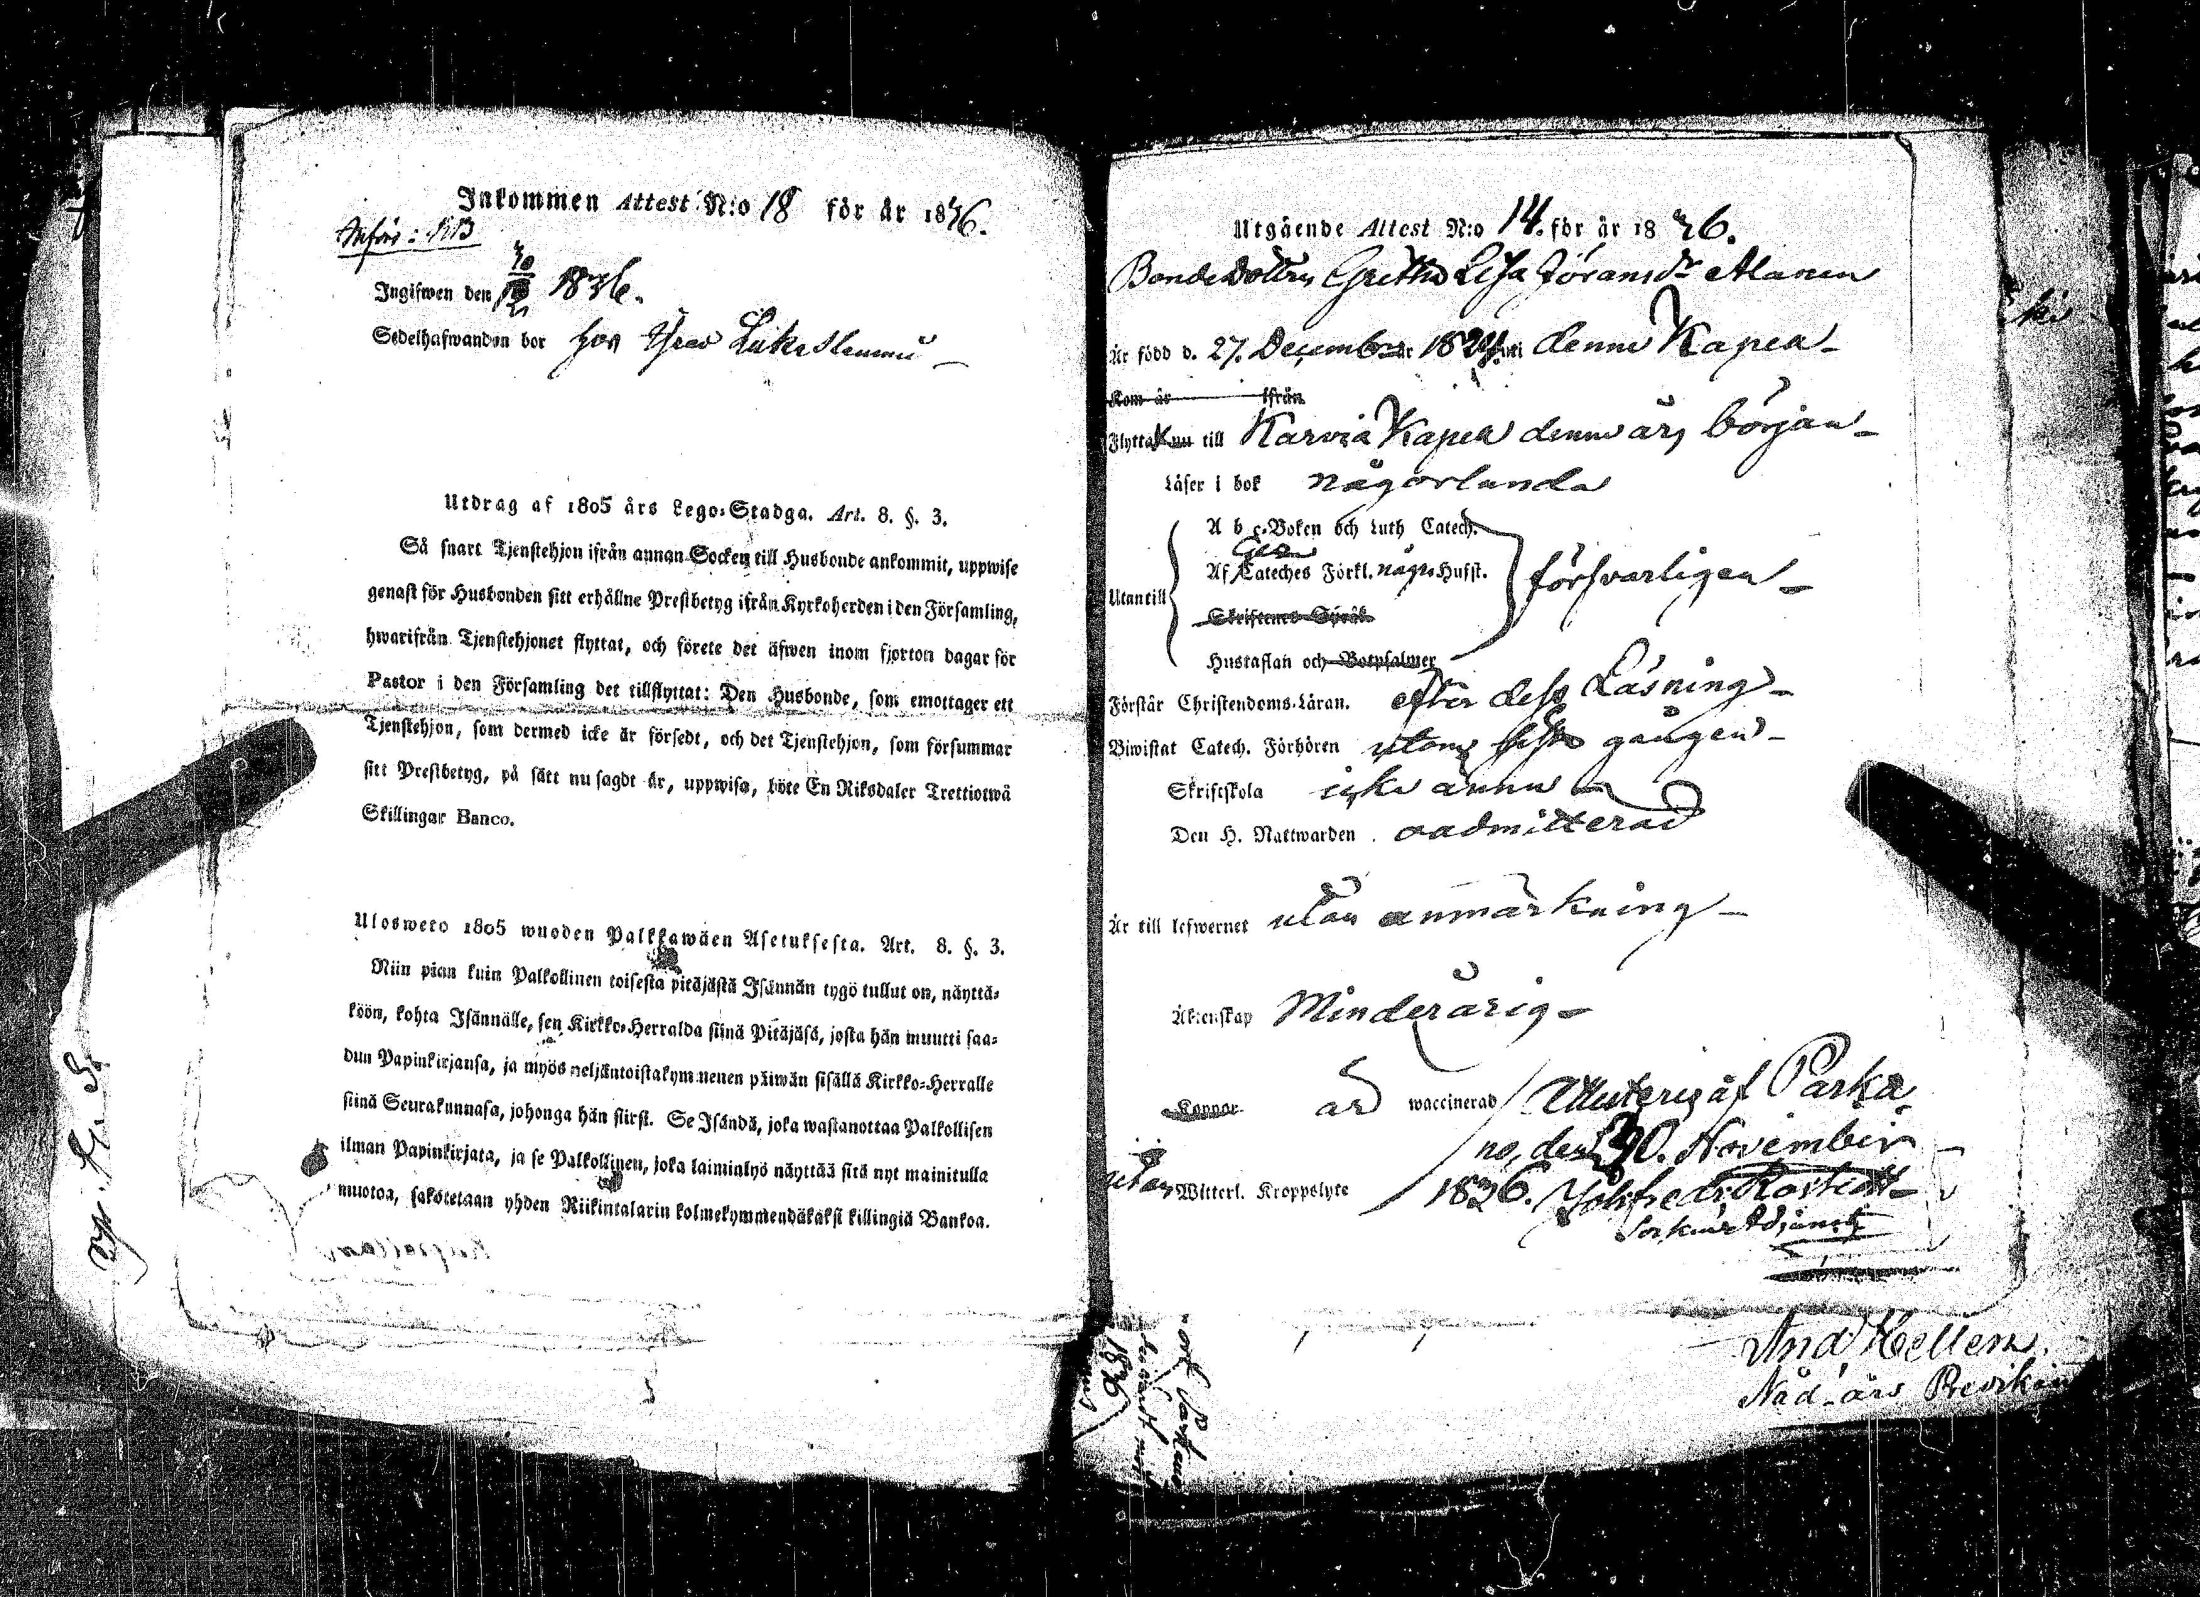 Inkommen Attest N:o 18 för år 1836.
Införd: KB
Ingifwen den 1836.
Sedelhafwanden bor hos
Utdrag af 1805 års Lego-Stadga. Art. 8. §. 3.
Så snart Tjenstehjon ifrån annan Socken till Husbonde ankommit, uppwise
genast för Husbonden sitt erhållne Prestbetyg ifrån Kyrkoherden i den Församling,
hwarifrån Tjenstehjonet flyttat, och förete det äfwen inom fjorton dagar för
Pastor i den Församling det tillflyttat: Den Husbonde, som emottager ett
Tjenstehjon, som dermed icke är försedt, och det Tjenstehjon, som försummar
sitt Prestbetyg, på sätt nu sagdt är, uppwisa, böte En Riksdaler Trettiotwå
Skillingar Banco.
Ulosweto 1805 wuoden Palkkawäen Asetuksesta. Art. 8. §. 3.
Niin pian kuin Palkollinen toisesta pitäjästä Isännän tygö tullut on, näyttä-
köön, kohta Isännälle, sen Kirkko-Herralda siinä Pitäjäsä, josta hän muutti saa-
dun Papinkirjansa, ja myös neljäntoistakymmenen päiwän sisällä Kirkko-Herralle
siinä Seurakunnasa, johonga hän siirst. Se Isändä, joka wastanottaa Palkollisen
ilman Papinkirjata, ja se Palkollinen, joka laiminlyö näyttää sitä nyt mainitulla
muotoa, sakotetaan yhden Riikintalarin kolmekymmendäkaksi killingiä Bankoa.
Utgående Attest N:o 14. för år 1836.
Bondedottren Gretha Lisa Jöransdr Alanen
Är född d. 27. December år 1824. uti denne Kapell
Kom år ifrån
Flyttar nu till Karvia Kapell denne års början
Läser i bok någorlunda
A b c-Boken och Luth Catech.
Af Cateches Förkl. några Hufst. försvarligen
Utantill
Skriftenes Språk
Hustaflan och Botpsalmer
Förstår Christendoms-Läran. efter dess Läsning
Biwistat Catech. Förhören utom sista gången
Skriftskola icke ännu
Den H. Nattwarden oadmitterad
Är till lefwernet utan anmärkning
Äktenskap Minderårig
Koppor är waccinerad Attesteras af Parka
no, den 30. November
utan Witterl. Kroppslyte 1836.
And Hellen